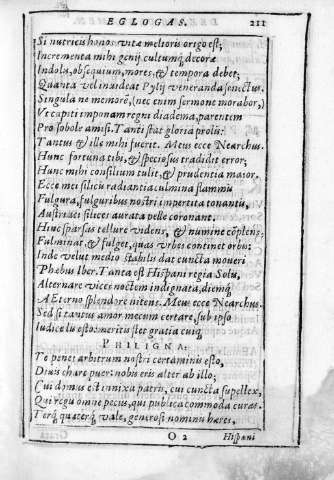 EGLOGAS. 211
Si nutricis honos vitæ melioris origo est;
Incrementa mihi genij cultumq; decoræ
Indolis, obsequium, mores, & tempora debet;
Quanta vel inuideat Pylij veneranda senectus.
Singula ne memorē, (nec enim sermone morabor,)
Vt capiti imponam regni diadema, parentem
Pro sobole amisi. Tanti stat gloria prolis:
Tantus & ille mihi fuerit. Meus ecce Nearchus.
Hunc fortuna tibi, & speciosus tradidit error;
Hunc mihi consilium tulit, & prudentia maior.
Ecce mei silicis radiantia culmina flammis
Fulgura, fulguribus nostri impertita tonantis,
Austriaci silices aurata pelle coronant.
Hinc sparsus tellure videns, & numine cōplens;
Fulminat, & fulget, quas vrbes continet orbis:
Inde velut medio stabilis dat cuncta moueri
Phœbus Iber. Tanta est Hispani regia Solis,
Alternare vices noctem indignata, diemq;
Aeterno splendore nitens. Meus ecce Nearchus.
Sed si tantus amor mecum certare, sub ipso
Iudice lis esto: meritis stet gratia cuiq;
PHILIGNA:
Te penes arbitrum nostri certaminis esto,
Diuis chare puer: nobis eris alter ab illo;
Cui domus est innixa patris, cui cuncta supellex,
Qui regis omne pecus, qui publica commoda curas.
Terq; quaterq; vale, generosi nominis hæres,
O 2 Hispani